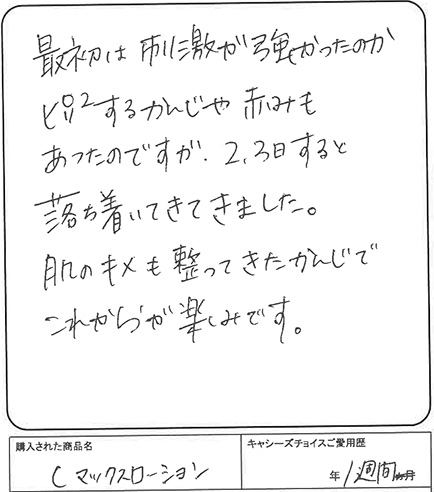 最初は刺激が強かったのか
ピリ2するかんじや赤みも
あったのですが、2、3日すると
落ち着いてきてきました。
肌のキメも整ってきたかんじで
これからが楽しみです。
購入された商品名
キャシーズチョイスご愛用歴
Cマックスローション
年 1週間